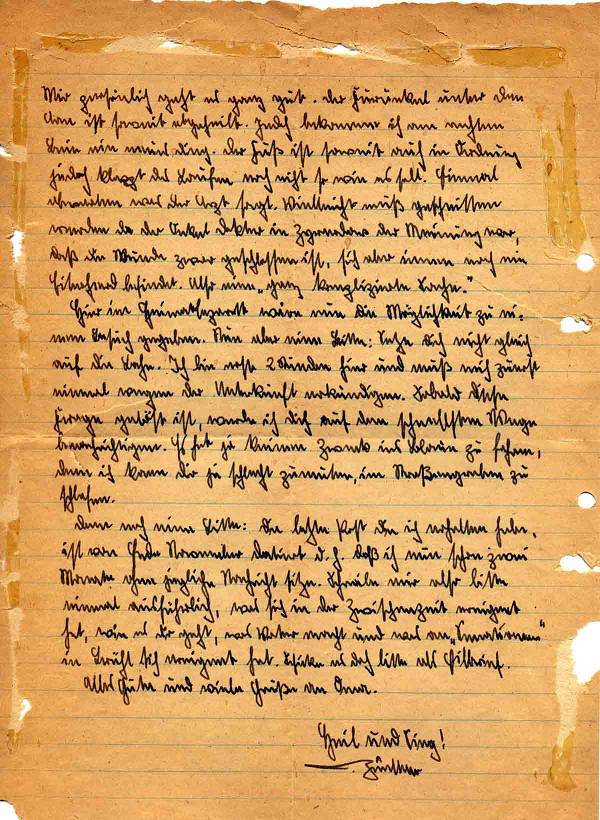 Mir persönlich geht es ganz gut. Der Furunkel unter dem
Arm ist soweit abgeheilt. Jedoch bekomme ich am rechten
Bein ein neues Ding. Der Fuß ist soweit auch in Ordnung
jedoch klappt das Laufen noch nicht so wie es soll. Einmal
abwarten was der Arzt sagt. Vielleicht muß geschnitten
werden da der Onkel Doktor in der Meinung war,
daß die Wunde zwar geschlossen ist, sich aber innen noch ein
Eiterherd befindet. Also eine „ganz komplizierte Sache."
Hier im Heimatlazarett wäre nun die Möglichkeit zu ei=
nem Besuch gegeben. Nun aber eine Bitte: Setze Dich nicht gleich
auf die Bahn. Ich bin erst 2 Stunden hier und muß mich zuerst
einmal wegen der Unterkunft erkundigen. Sobald diese
Frage gelöst ist, werde ich Dich auf dem schnellsten Wege
benachrichtigen. Es hat ja keinen Zweck ins Blaue zu fahren,
denn ich kann Dir ja schlecht zumuten, im Straßengraben zu
schlafen.
Dann noch eine Bitte: Die letzte Post die ich erhalten habe,
ist von Ende November datiert d. h. daß ich nun schon zwei
Monate ohne jegliche Nachricht sitze. Schreibe mir also bitte
einmal ausführlich, was sich in der Zwischenzeit ereignet
hat, wie es Dir geht, was Vater macht und was an
in sich ereignet hat. Schicke es doch bitte als Eilbrief.
Alles Gute und viele Grüße an Oma.
Heil und Sieg!
Günther